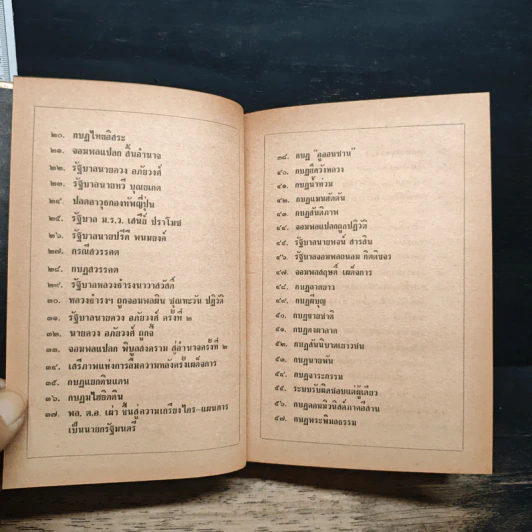 ๒๐. กบฏไทยอิสระ
๒๑. จอมพลแปลก สิ้นอำนาจ
๒๒. รัฐบาลนายควง อภัยวงศ์
๒๓. รัฐบาลนายทวี บุณยเกต
๒๔. ปลดอาวุธกองทัพญี่ปุ่น
๒๕. รัฐบาล ม.ร.ว. เสนีย์ ปราโมช
๒๖. รัฐบาลนายปรีดี พนมยงค์
๒๗. กรณีสวรรคต
๒๘. กบฏสวรรคต
๒๙. รัฐบาลหลวงธำรงนาวาสวัสดิ์
๓๐. หลวงธำรงฯ ถูกจอมพลผิน ชุณหะวัน ปฏิวัติ
๓๑. รัฐบาลนายควง อภัยวงศ์ ครั้งที่ ๒
๓๒. นายควง อภัยวงศ์ ถูกจี้
๓๓. จอมพลแปลก พิบูลสงคราม สู่อำนาจครั้งที่ ๒
๓๔. เสรีภาพแห่งการดื่มความหลังครั้งเผด็จการ
๓๕. กบฏแยกดินแดน
๓๖. กบฏมไฮยิดดิน
๓๗. พล. ต.อ. เผ่า ขึ้นสู่ความเกรียงไกร-แผนการ
เป็นนายกรัฐมนตรี
๓๘. กบฏ "ดูซงยอ"
๔๐. กบฏยึดวังหลวง
๔๑. กบฏน้ำท่วม
๔๒. กบฏแมนฮัตตัน
๔๓. กบฏสันติภาพ
๔๔. จอมพลแปลกถูกปฏิวัติ
๔๕. รัฐบาลนายพจน์ สารสิน
๔๖. รัฐบาลจอมพลถนอม กิตติขจร
๔๗. จอมพลสฤษดิ์ เผด็จการ
๔๘. กบฏลาดยาว
๔๙. กบฏผีบุญ
๕๐. กบฏนายชาติ
๕๑. กบฏดงผาลาด
๕๒. กบฏสันนิบาตเยาวชน
๕๓. กบฏนายพัน
๕๔. กบฏจาระกรรม
๕๕. ระบบรับผิดชอบแต่ผู้เดียว
๕๖. กบฏคอมมิวนิสต์ภาคอีสาน
๕๗. กบฏพระพิมลธรรม